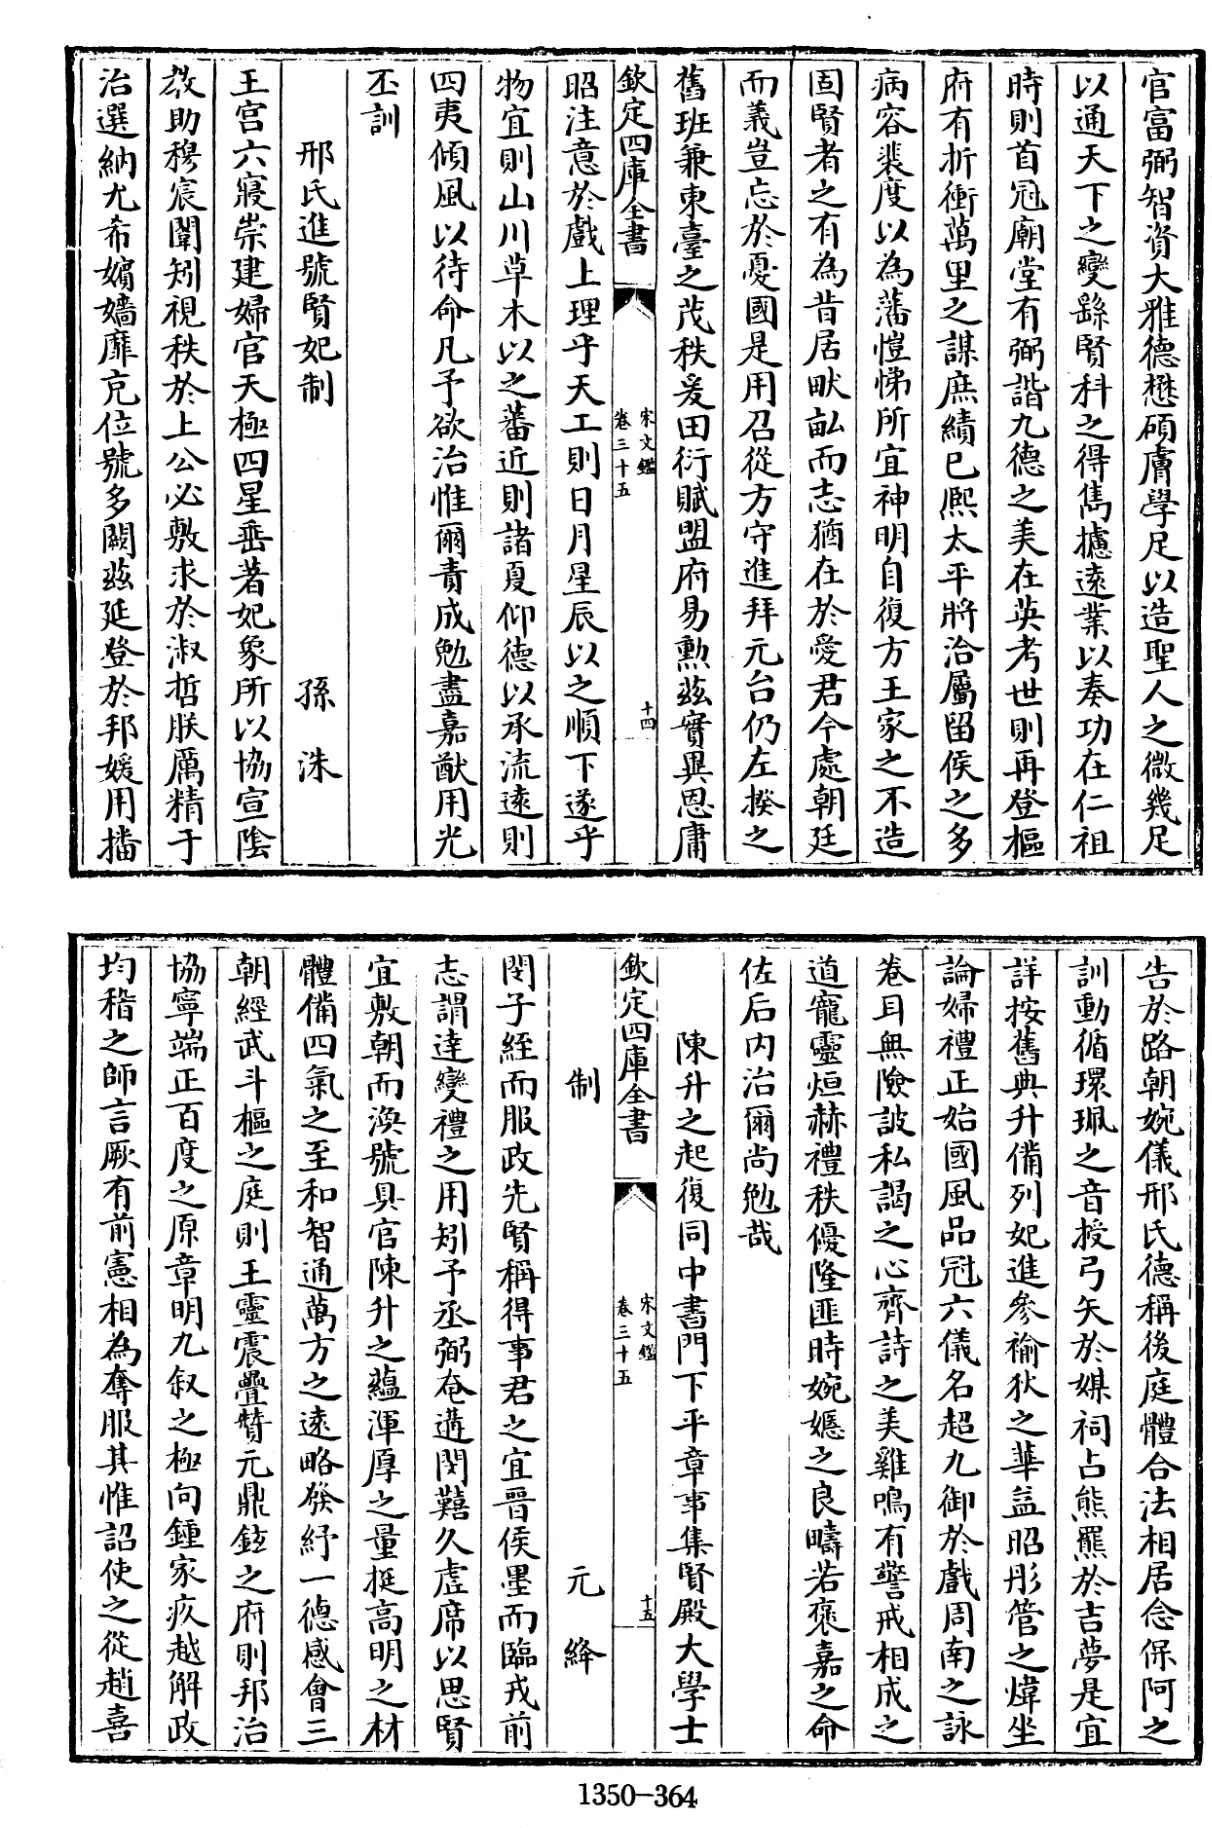 官富弼智資大雅德懋碩膚學足以造聖人之微幾足
以通天下之變繇賢科之得雋攄逺業以奏功在仁祖
時則首冠廟堂有弼諧九德之美在英考世則再登樞
府有折衝萬里之謀庶績已熙太平將洽屬留侯之多
病容裴度以為藩愷悌所宜神明自復方王家之不造
固賢者之有為昔居畎畝而志猶在於愛君今處朝廷
而義豈忘於憂國是用召從方守進拜元台仍左揆之
舊班兼東臺之茂秩爰田衍賦盟府易勲兹實異恩庸
欽定四庫全書
宋文鑑
卷三十五
十四
昭注意於戲上理乎天工則日月星辰以之順下遂乎
物宜則山川草木以之蕃近則諸夏仰德以承流逺則
四夷傾風以待命凡予欲治惟爾責成勉盡嘉猷用光
丕訓
邢氏進號賢妃制
孫洙
王宫六寢崇建婦官天極四星垂著妃象所以協宣陰
教助穆宸闈矧視秩於上公必敷求於淑哲朕厲精于
治選納尤希嬪嬙靡充位號多闕兹延登於邦媛用播
告於路朝婉儀邢氏德稱後庭體合法相居念保阿之
訓動循環珮之音授弓矢於禖祠占熊羆於吉夢是宜
詳按舊典升備列妃進參褕狄之華益昭彤管之煒坐
論婦禮正始國風品冠六儀名超九御於戲周南之詠
卷耳無險詖私謁之心齊詩之美雞鳴有警戒相成之
道寵靈烜赫禮秩優隆匪時婉嫕之良疇若褒嘉之命
佐后内治爾尚勉哉
陳升之起復同中書門下平章事集賢殿大學士
欽定四庫全書
宋文鑑
卷三十五
十五
制
元絳
閔子絰而服政先賢稱得事君之宜晉侯墨而臨戎前
志謂達變禮之用矧予丞弼奄遘閔囏久虚席以思賢
宜敷朝而渙號具官陳升之蘊渾厚之量挺高明之材
體備四氣之至和智通萬方之逺略發紓一德感會三
朝經武斗樞之庭則王靈震疊贊元鼎鉉之府則邦治
協寧端正百度之原章明九叙之極向鍾家疚越解政
均稽之師言厥有前憲相為奪服其惟詔使之從趙喜
1350-364